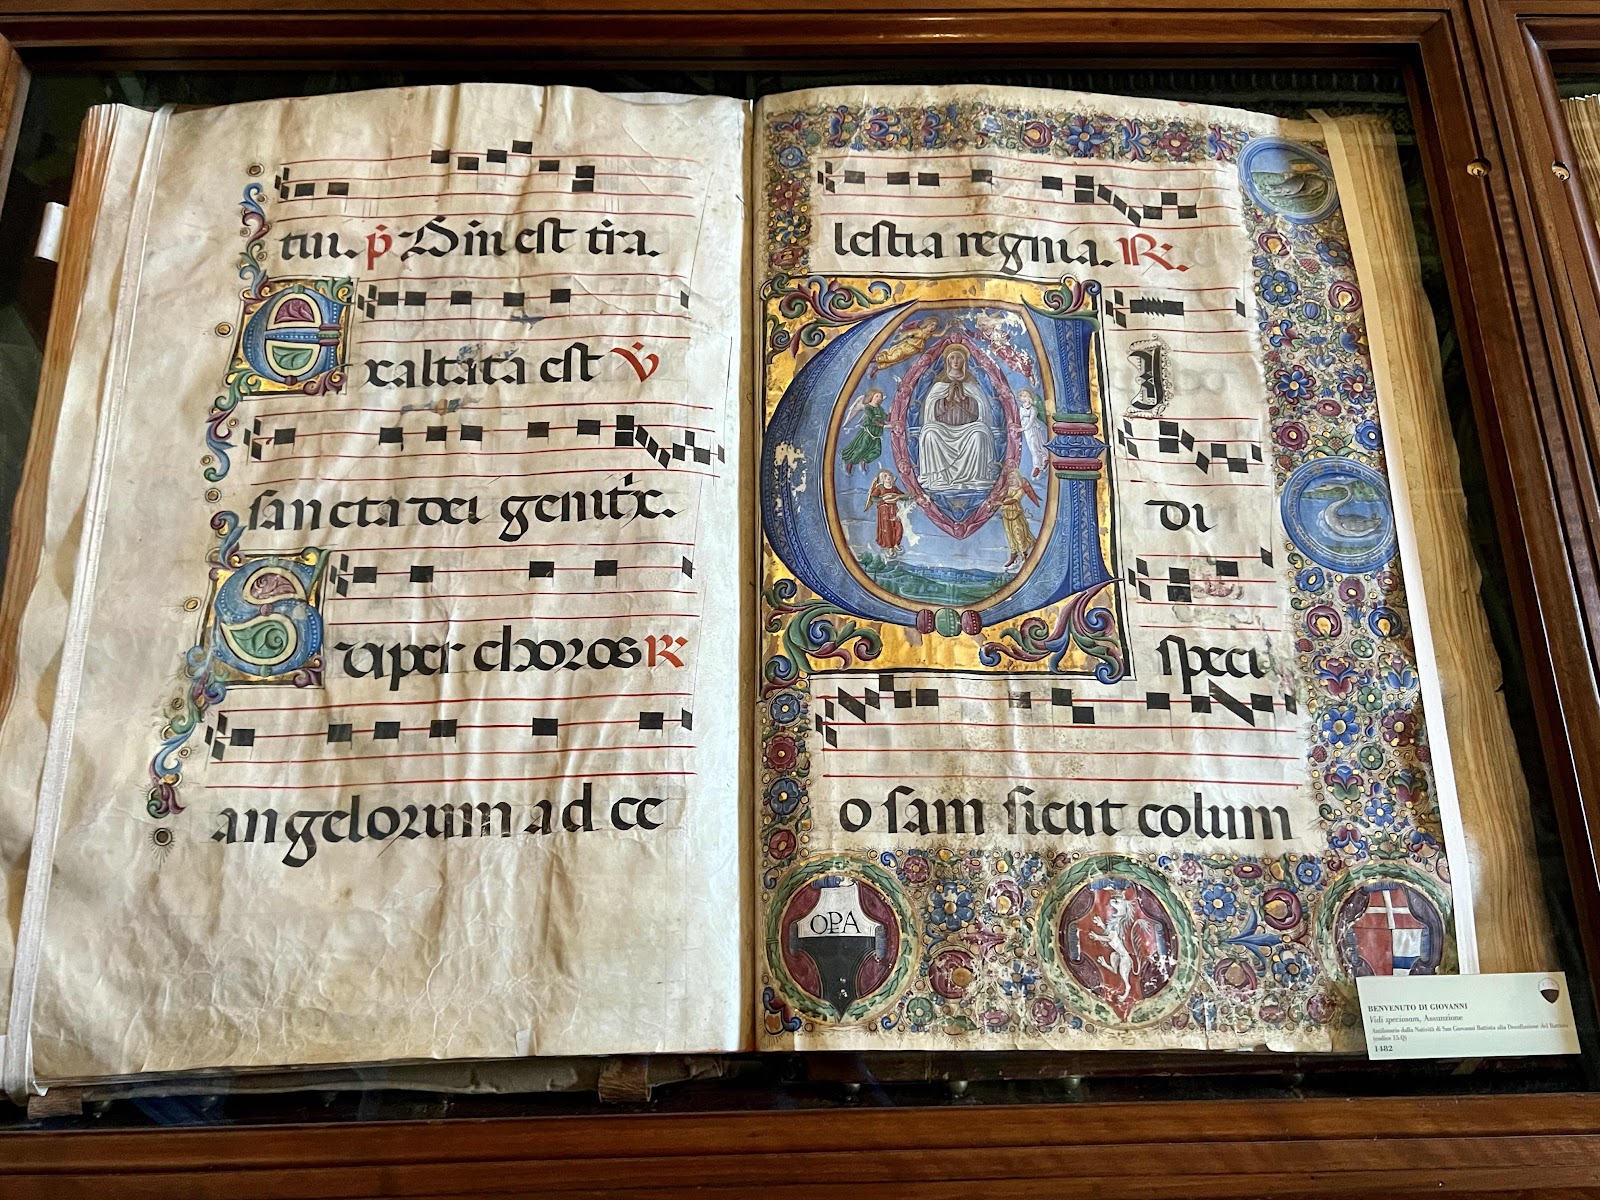 tui. p̄ Dn̄i est tr̄a.
Exaltata est ℣
sancta dei genitr̄x.
Super choros ℟
angelorum ad ce
lestia regnia. ℟.
VI
di
speci
osam sicut colum
OPA
BENVENUTO DI GIOVANNI
Vidi speciosam, Assunzione
Antifonario dalla Natività di San Giovanni Battista alla Decollazione del Battista
(codice 13.Q)
1482